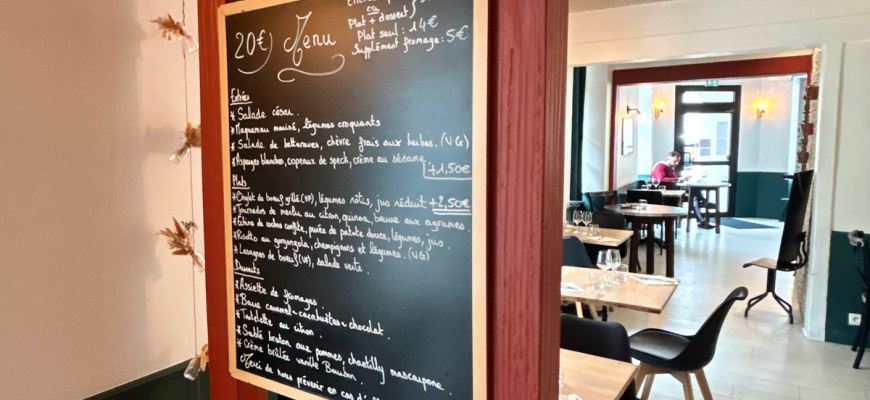 20€ Menu
ou
Plat + dessert
Plat seul : 14€
Supplément fromage : 5€
Entrées
* Salade césar.
* Maquereau mariné, légumes croquants
* Salade de betteraves, chèvre frais aux herbes. (VG)
* Asperges blanches, copeaux de speck, crème au sésame
+1,50€
Plats
* Onglet de bœuf grillé (VF), légumes rôtis, jus réduit +2,50€
* de merlu au citron, quinoa, beurre aux agrumes.
* Échine de cochon confite, purée de patate douce, légumes, jus.
* Risotto au gorgonzola, champignons et légumes. (VG)
* Lasagnes de bœuf (VF), salade verte.
Desserts
* Assiette de fromages.
* Barre caramel-cacahuètes-chocolat.
* Tartelette au citron.
* Sablé breton aux pommes, chantilly mascarpone.
* Crème brûlée vanille Bourbon.
Merci de nous prévenir en cas d'